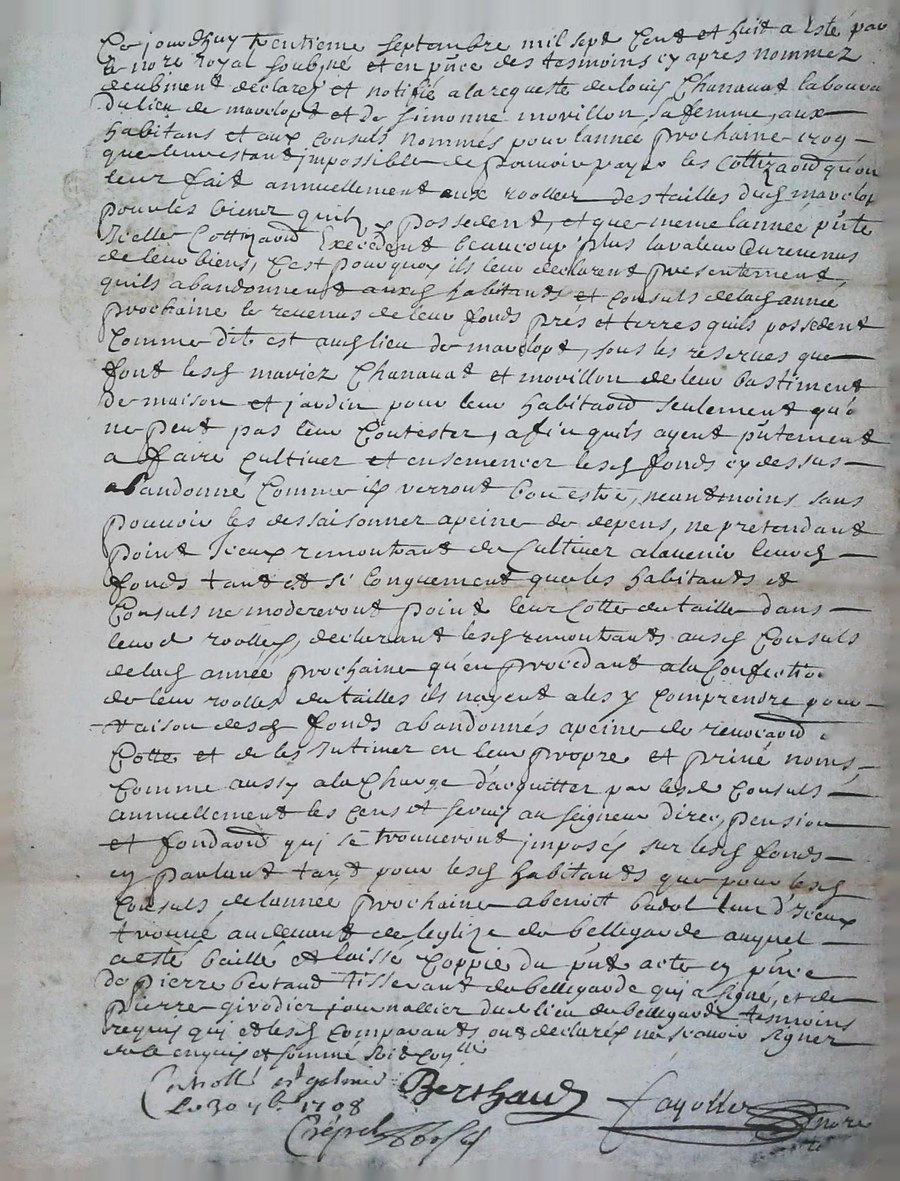 Ce jourdhuy trentieme septembre mil sept Cent et huit a esté par
le nore royal soubné et en pñce des tesmoins cy aprés nommez
deubment declaré et notifié a la requeste de louis Chanauat laboureur
du lieu de marclopt et de simonne morillon sa femme, aux
habitans et aux Consuls nommés pour lannée prochaine
que leur estant impossible de pouvoir payer les Cottizaõns qu'on
leur fait annuellement aux roolles des tailles dud marclop
pour les biens quilz y possedent, et que meme lannée pñte
Icelles Cottizaõns Excedent beaucoup plus la valeur du revenus
de leur biens, C'est pourquoy ils leur declarent presentement
quils abandonnent auxd habitants et Consuls de lad année
prochaine le revenus de leur fonds prés et terres quils possedent
Comme dit est aud lieu de marclopt, sous les reserves que
font lesd mariez Chanauat et morillon de leur bastiment
de maison et jardin pour leur habitaõn seulement qu'o
ne peut pas leur Contester, afin quils ayent pñtement
a faire Cultiver et ensemencer lesd fonds cy dessus
abandonné Comme ils verront bon estre, neantmoins sans
pouvoir les dessaisonner apeine de depens, ne pretendant
point Iceux remontrant de Cultiver alavenir leurd
fonds tant et si longuement que les habitants et
Consuls ne modereront point leur Cotte de taille dans
leurd roolles, declarant lesd remontrants ausd Consuls
de lad année prochaine qu'en procedant a la Confection
de leur roolles de tailles ils nayent a les y Comprendre pour
raison desd fonds abandonnés apeine de
Cotte et de les Intimer en leur propre et privé noms,
Comme aussy a la Charge d'acquitter par lesd Consuls
annuellement les Cens et servis au seigneur direc, pension
et fondaõn qui se trouveront imposés sur lesd fonds
en parlant tant pour lesd habitants que pour lesd
Consuls de lannée prochaine a benoit badol lun d'Iceux
trouvé audevant de leglize de bellegarde auquel
a esté baillé et laissé Coppie du pñt acte en pñce
de pierre bertaud tisserant de bellegarde qui a signé, et de
pierre givodier journallier dud lieu de bellegarde tesmoins
requis qui et lesd Comparants ont declarés ne scavoir signer
de ce enquis et sommé
Controllé a st galmier
Le 30 7bre 1708
Berthaud
fayolle nore